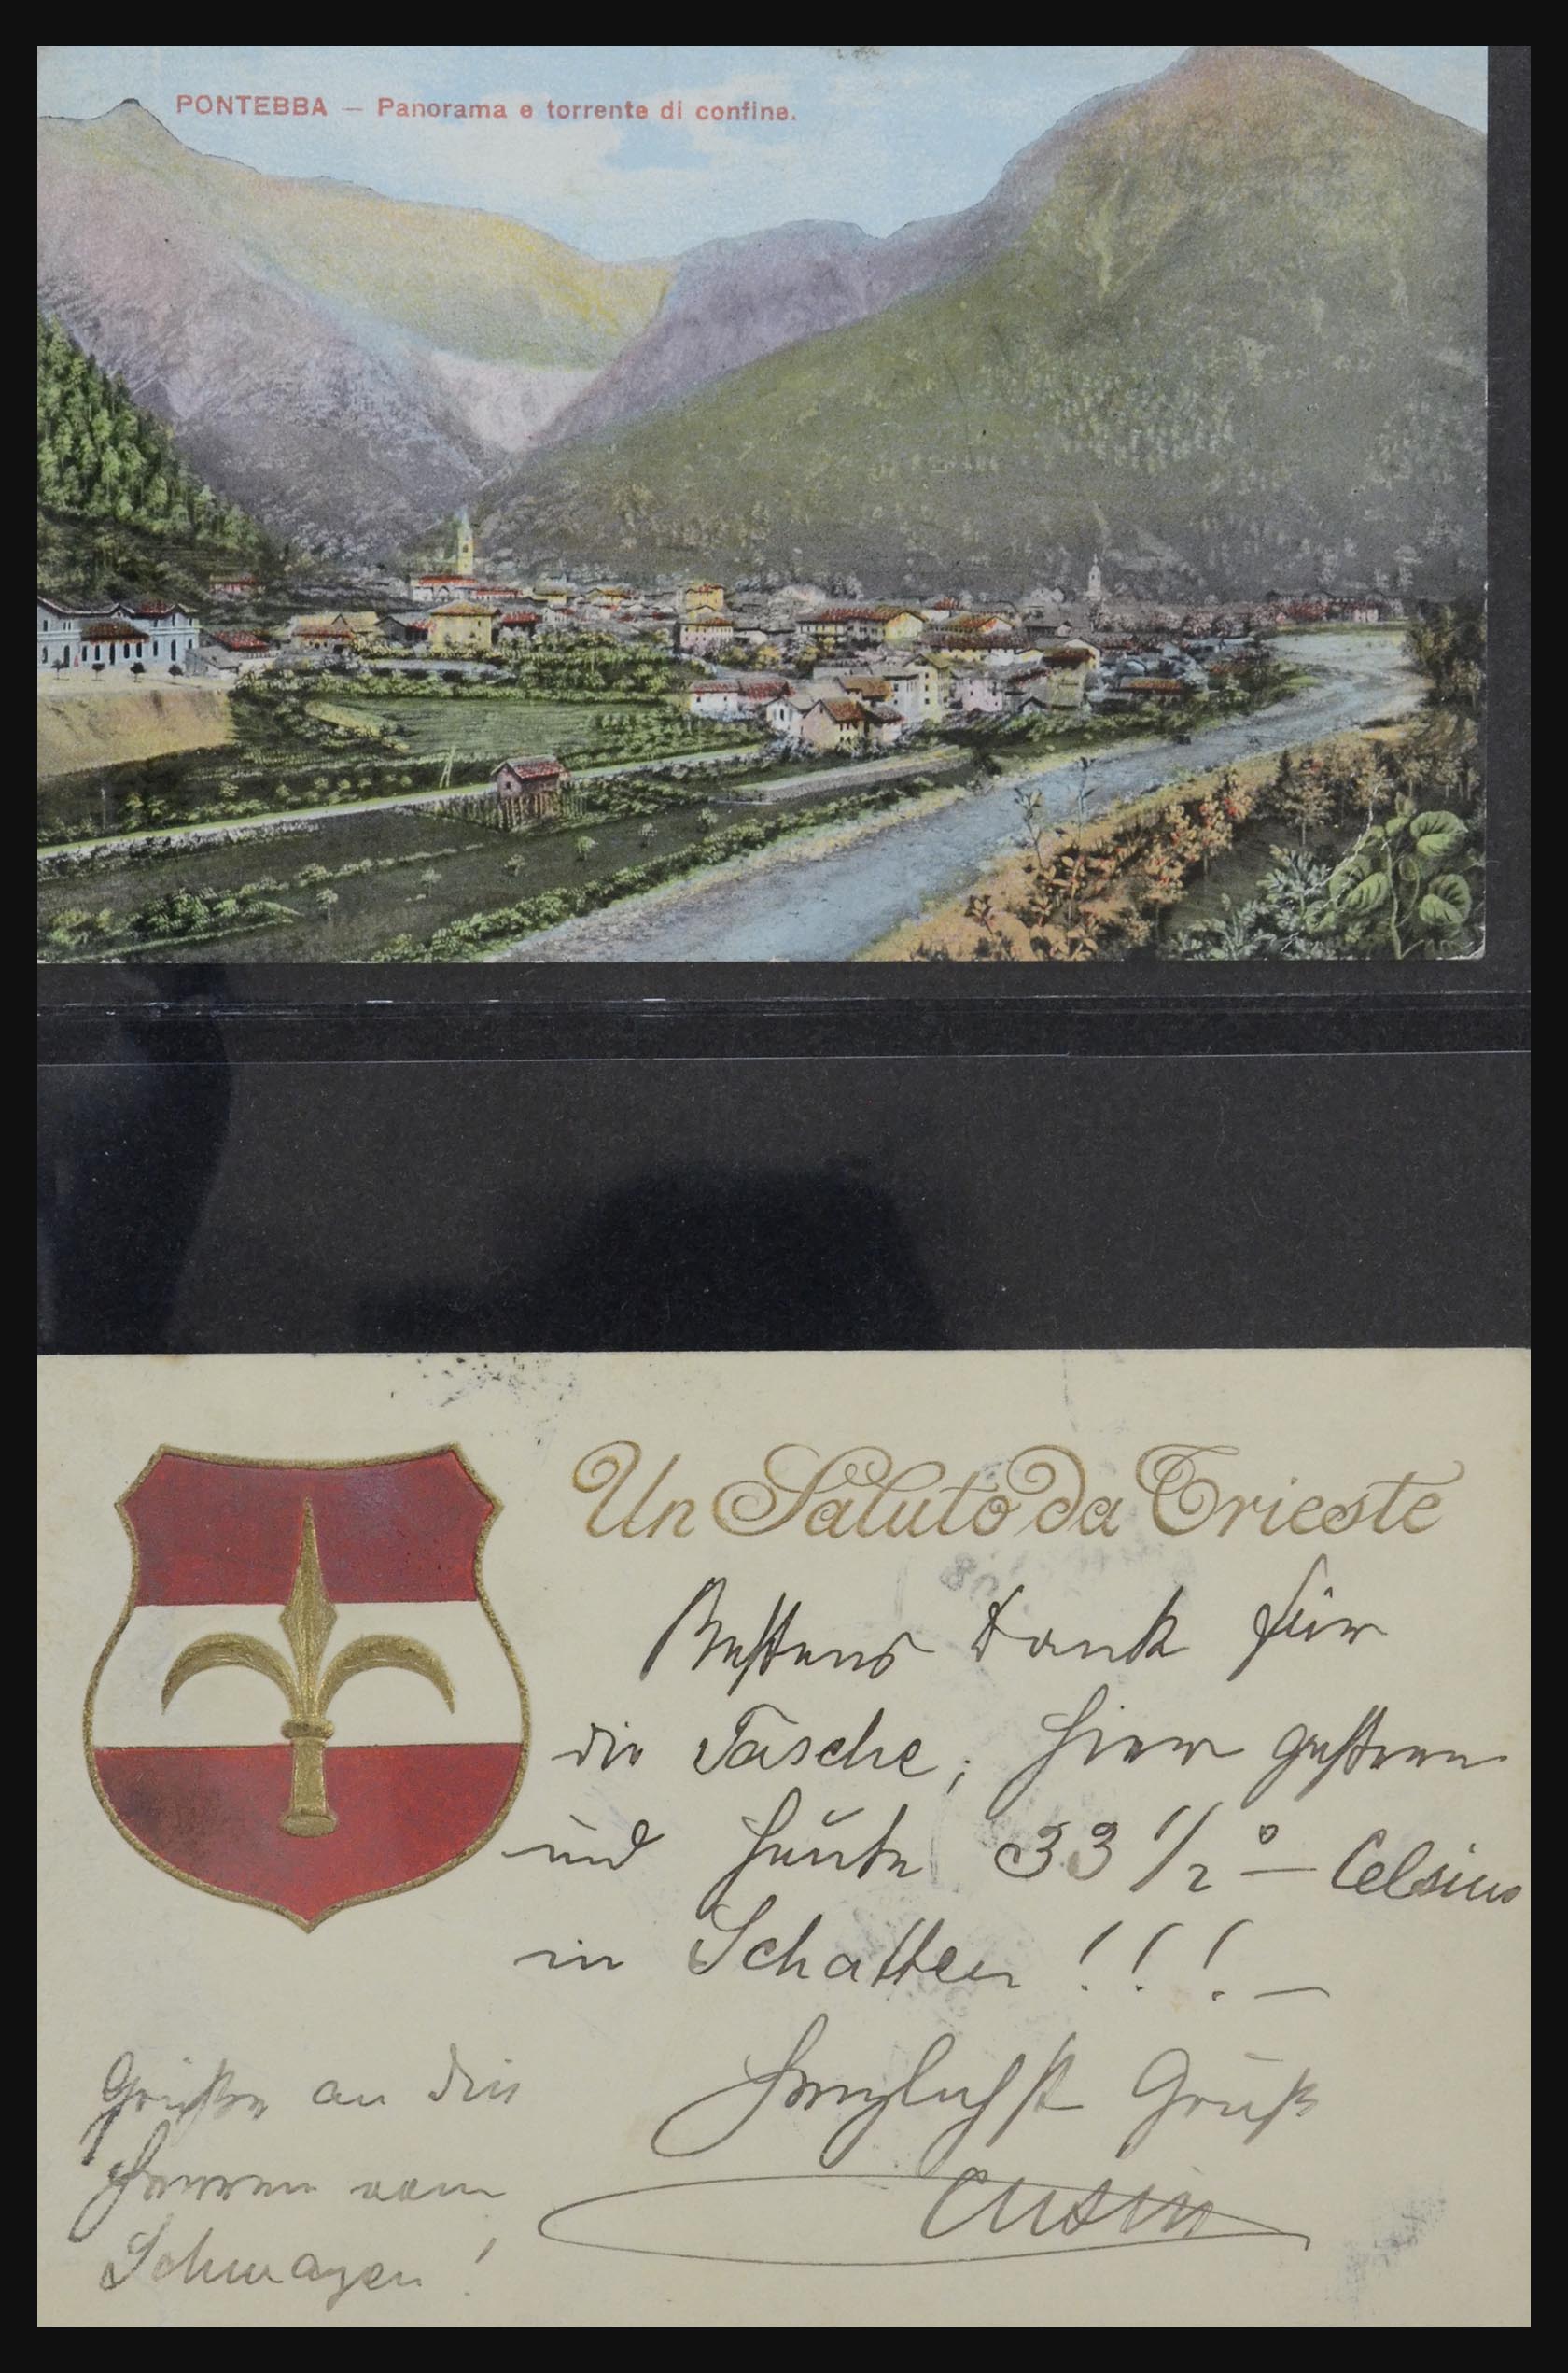 PONTEBBA — Panorama e torrente di confine.
Un Saluto da Trieste
Bestens Dank für
die Tasche; hier gestern
und heute 33 1/2° — Celsius
in Schatten !!! —
Herzlichst Gruß
Grüße an die
Herren vom
Schwayen!